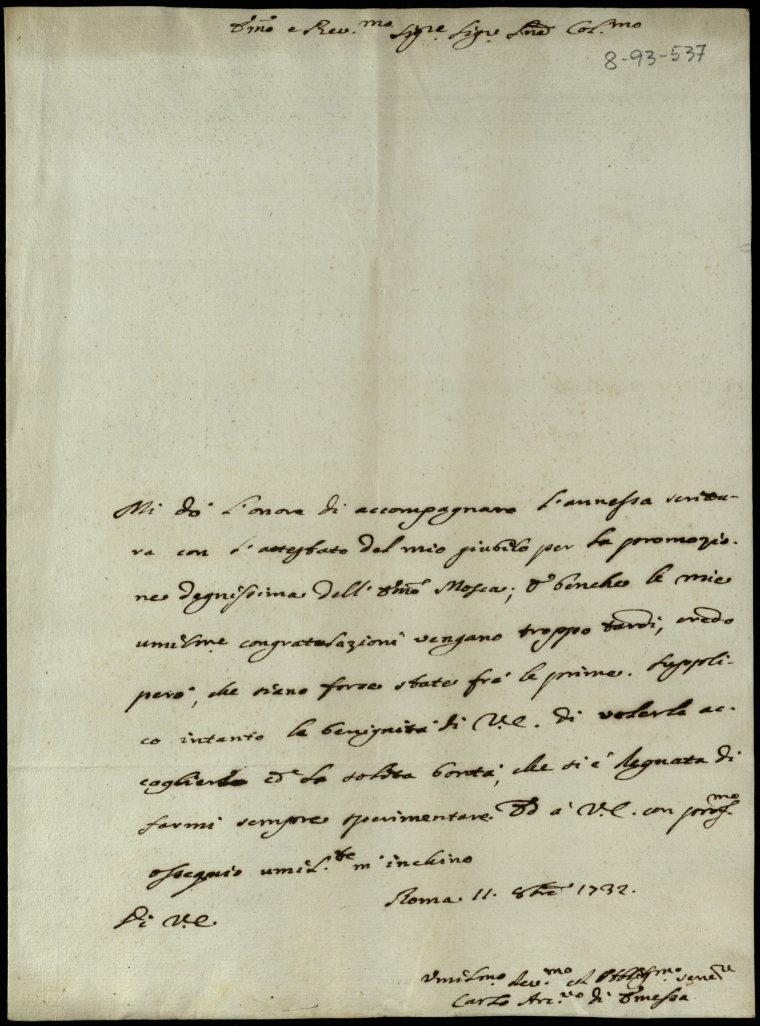 Emo e Rev.mo Sig.re Sig.re Pne Col.mo
8-93-537
Mi dò l'onore di accompagnare l'annessa scrittu-
ra con l'attestato del mio giubilo per la promozio-
ne degnissima dell' Emo Mosca; E benche le mie
umilme congratulazioni vengano troppo tardi, credo
però, che siano forse state frà le prime. Suppli-
co intanto la benignità di V.E. di volerle ac-
coglierle cõ la solita bontà, che si è degnata di
farmi sempre sperimentare. Ed à V.E. con prof.mo
ossequio umil.te m'inchino
Roma 11. 8bre 1732.
Di V.E.
Umilmo Dev.mo ed Obbligmo serve
Carlo Arc.vo di Emessa